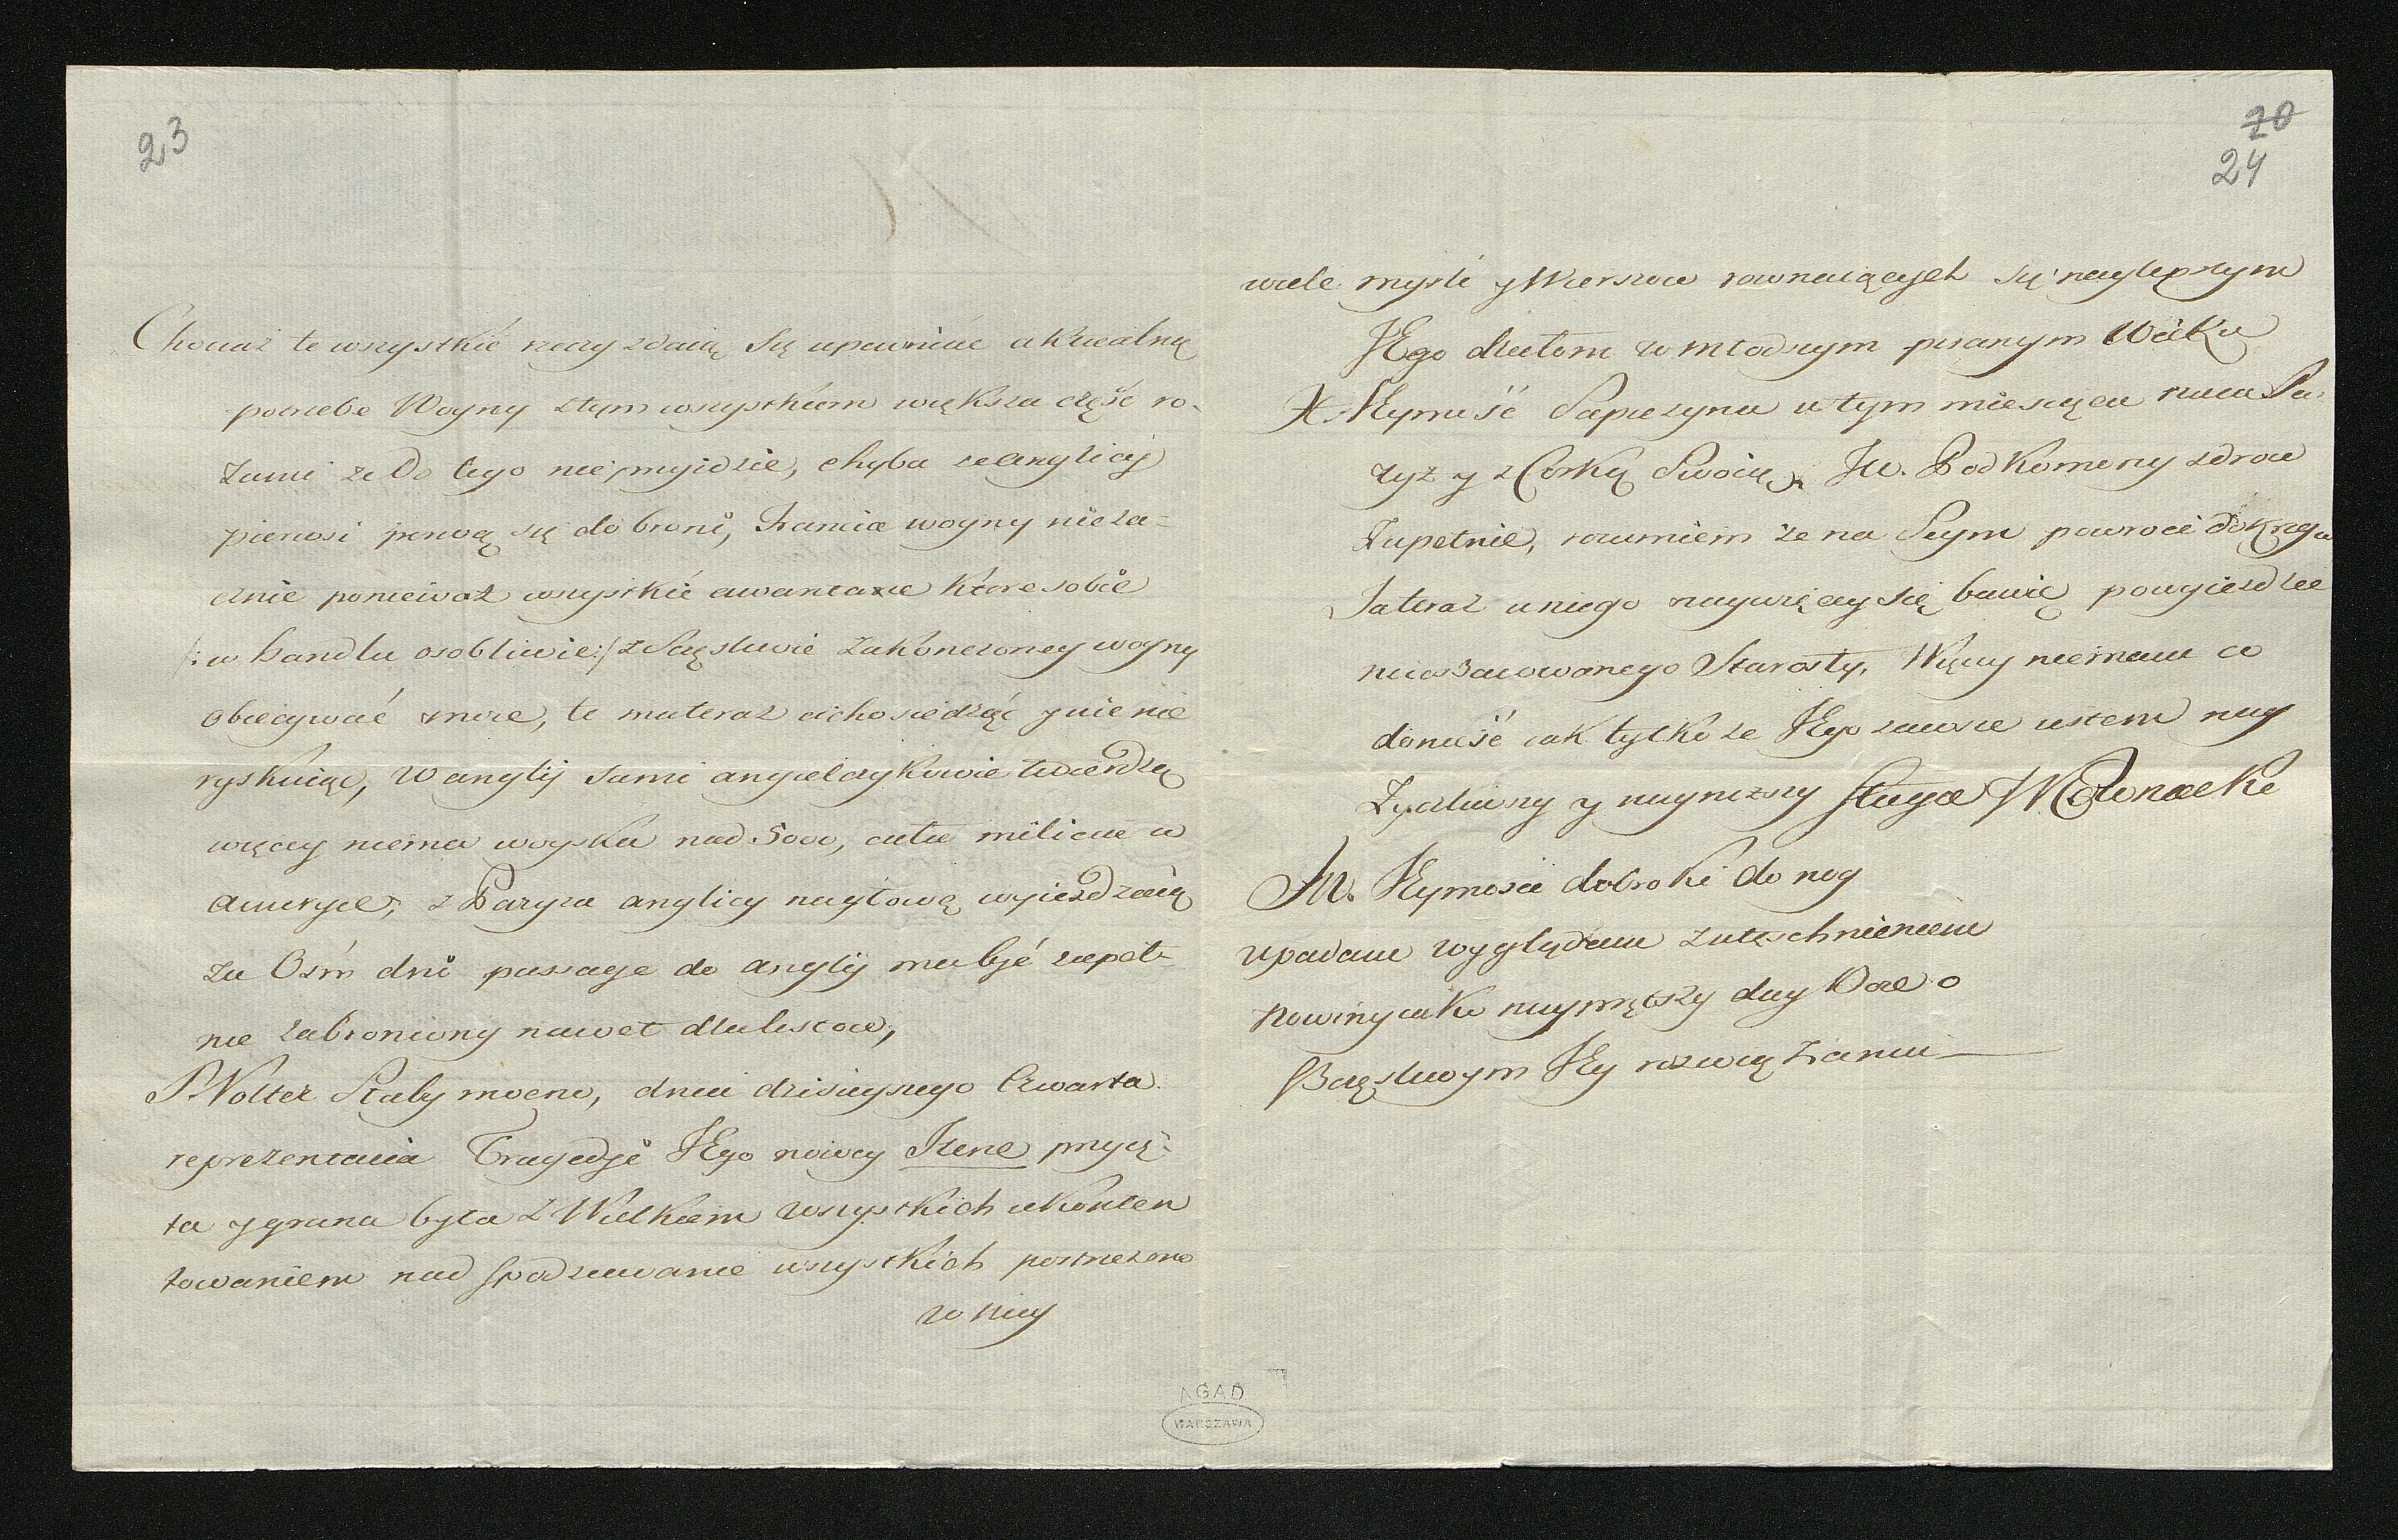 23
Chociaż te wszystkie rzeczy zdaią Się upewniać aktualną
potrzebe Woyny ztym wszystkiem większa część ro-
zumi że Do tego nie przyidzie, chyba że anglicy
pierwsi porwą się do broni, Francia woyny nieza-
cznie ponieważ wszystkie awantaże które sobie
/: w handlu osobliwie :/ z Sczęsliwie zakonczoney woyny
obiecywać może, te ma teraz cicho siedząc y nic nie
ryskuiąc, W anglij sami angielczykowie twierdzą
więcy niema woyska nad 5000, cała milicia w
Ameryce, z Paryża anglicy nagłowę wyieżdzaią
za Ośm dni passage do anglij ma być zupeł-
nie zabroniony nawet dla listow,
P. Volter Słaby mocno, dnia dzisieyszego Czwarta
reprezentacia Tragedji JEgo nowey Irene przyię-
ta y grana była z Wielkiem wszystkich ukonten
towaniem nad spodziewanie wszystkich postrzeżono
w niey
20
24
wiele mysli y Wierszow rownaiących się naylepszym
JEgo dziełom w młodszym pisanym Wieku
X. JEymość Sapieżyna w tym miesiącu rusza Pa-
ryż y z Corką Swoią, JW. Podkomorzy zdrow
Zupełnie, rozumiem że na Seym powroci do Kraju
Ja teraz u niego naywięcy się bawię po wyiezdzie
nieoszacowanego Starosty, Więcy niemam co
donieść iak tylko że JEgo zawsze iestem nay
Życzliwszy y nayniższy sługa
JW. JEymosci dobrodki do nog
upadam wyglądam z utęschnieniem
Nowiny iako nayprętszy day Boże o
Sczęsliwym JEy rozwiązaniu
AGAD
WARSZAWA